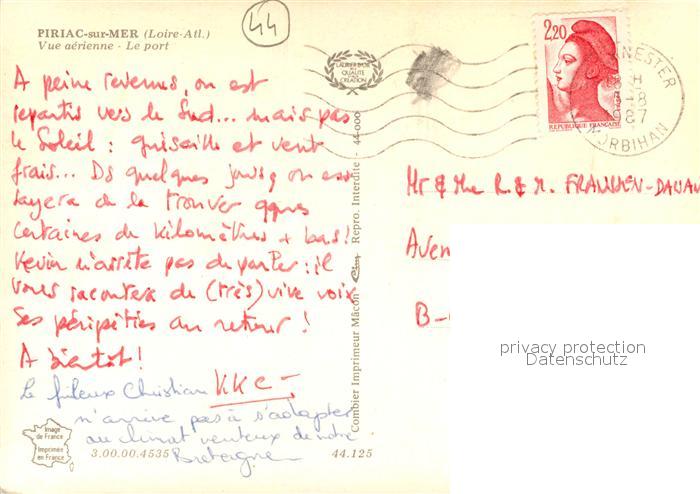 44
PIRIAC-sur-MER (Loire-Atl.)
Vue aérienne - Le port
LAURIER D'OR
DE LA
QUALITE
CREATION
2,20
REPUBLIQUE FRANÇAISE
NESTER
H
8
87
MORBIHAN
A peine revenus, on est
repartis vers le Sud... mais pas
le Soleil : grisaille et vent
frais... Ds quelques jours, on ess
ayera de le trouver qques
centaines de kilomètres + bas!
Kevin n'arrête pas de parler : il
vous racontera de (très) vive voix
ses péripéties au retour !
A bientôt !
KKC
Le frileux Christian
n'arrive pas à s'adapter
au climat venteux de notre
Bretagne
Combier Imprimeur Mâcon Cim Repro. Interdite - 44-000
Mr & Mme R. & M. FRANKEN-DAWAN
Aven
B-
privacy protection
Datenschutz
Image
de France
Imprimée
en France
3.00.00.4535
44.125